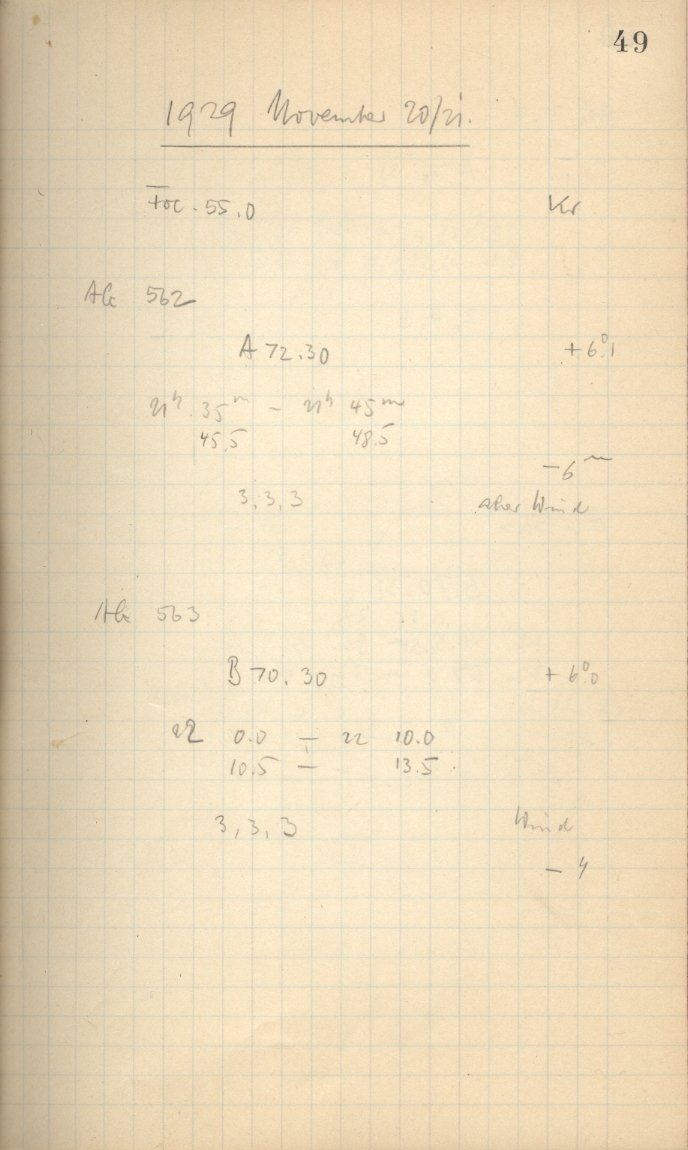 49
1929 November 20/21.
Foc. 55.0 Kr
562
A 72.30 +6°.1
21h 35m – 21h 45m
45.5 48.5
–6m
3, 3, 3 aber Wind
563
B 70.30 +6°.0
22 0.0 – 22 10.0
10.5 – 13.5
3, 3, 3 Wind
– 4